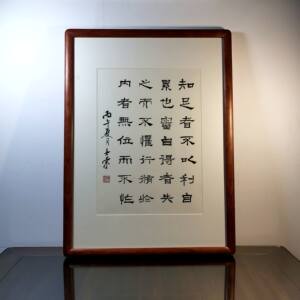 知足者不以利自
累也審自得者失
之而不懼行脩於
內者無位而不怍
丙午夏月